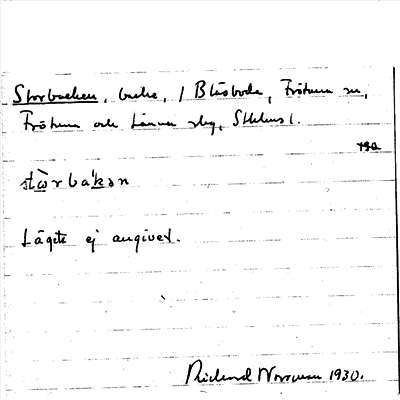 Storbacken, backe, / Blåsboda, Frötuna sn,
Frötuna och Länna sbg, Sthlms l.
stὼrba'kən
Läget ej angivet.
Richard Norrman 1930.